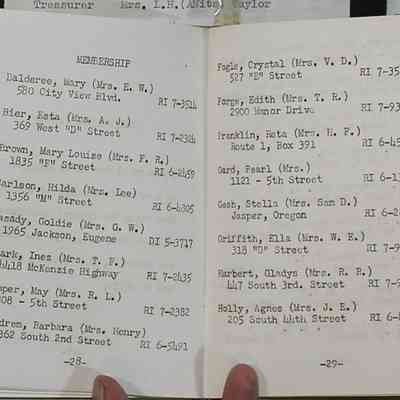 Treasurer Mrs. L.H.(Anita) Taylor
MEMBERSHIP
Dalderee, Mary (Mrs. E. W.)
580 City View Blvd. RI 7-3514
Bier, Esta (Mrs. A. J.)
369 West "D" Street RI 7-2324
Brown, Mary Louise (Mrs. F. R.)
1835 "F" Street RI 6-2459
Carlson, Hilda (Mrs. Lee)
1356 "M" Street RI 6-4305
asady, Goldie (Mrs. G. W.)
1965 Jackson, Eugene DI 5-3717
ark, Ines (Mrs. T. E.)
4418 McKenzie Highway RI 7-2435
oper, May (Mrs. R. L.)
08 - 5th Street RI 7-2382
dren, Barbara (Mrs. Henry)
362 South 2nd Street RI 6-5491
-28-
Fogle, Crystal (Mrs. V. D.)
527 "E" Street RI 7-35
Forge, Edith (Mrs. T. R.)
2900 Manor Drive RI 7-93
Franklin, Reta (Mrs. H. F.)
Route 1, Box 391 RI 6-4
Gard, Pearl (Mrs.)
1121 - 5th Street RI 6-1
Gosh, Stella (Mrs. Sam D.)
Jasper, Oregon RI 6-2
Griffith, Ella (Mrs. W. E.)
318 "D" Street RI 7-9
Harbert, Gladys (Mrs. R. R.)
447 South 3rd. Street RI 7-9
Holly, Agnes (Mrs. J. E.)
205 South 44th Street RI 6-
-29-